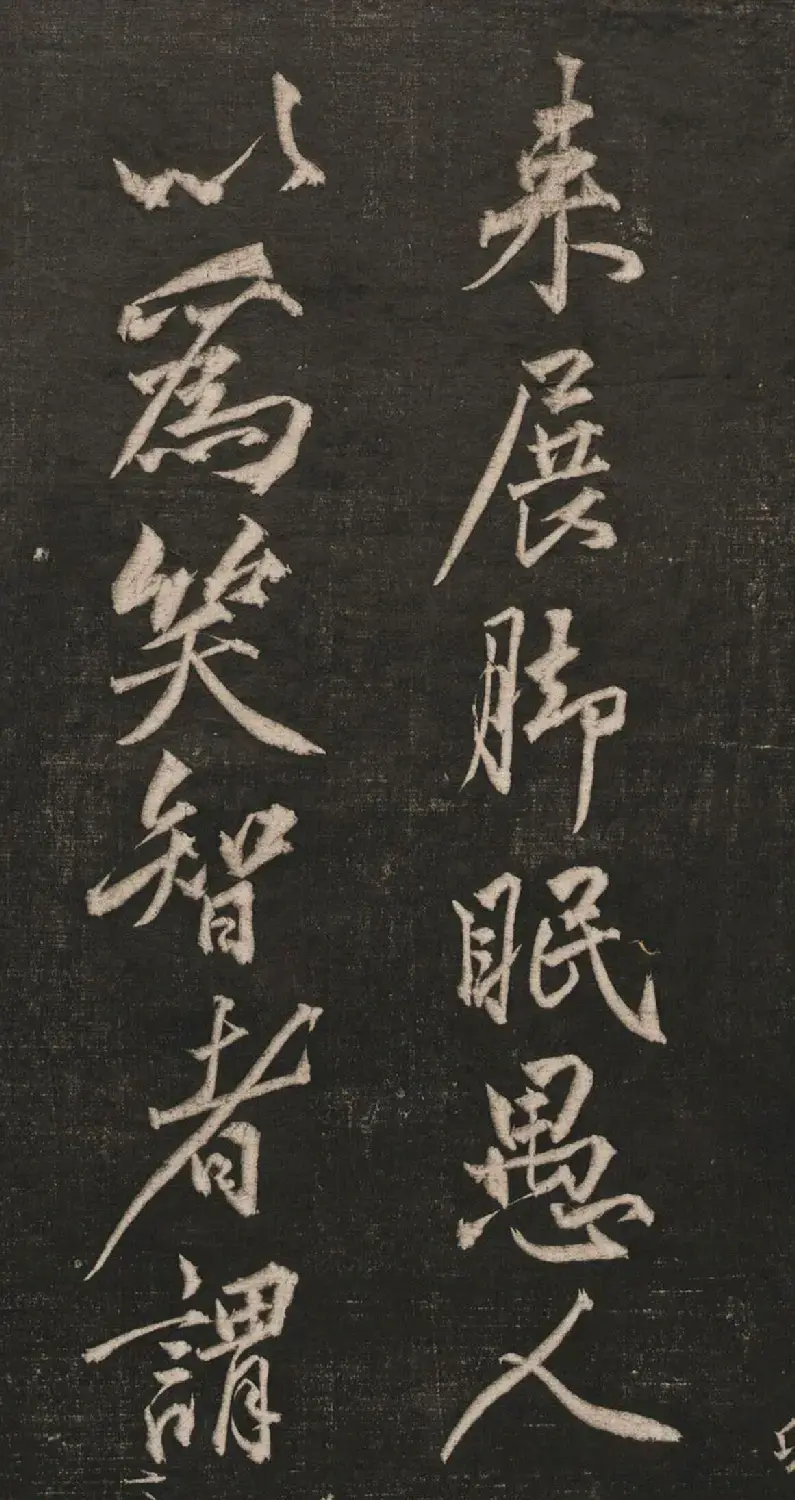 来展脚眠愚人
以爲笑智者謂